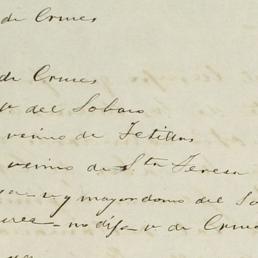 de Cruces
de Cruces
v. del Sobaco
vecino de Tetillas
vecino de Sta Teresa
y mayordomo del So
no dijo v. de Cruce